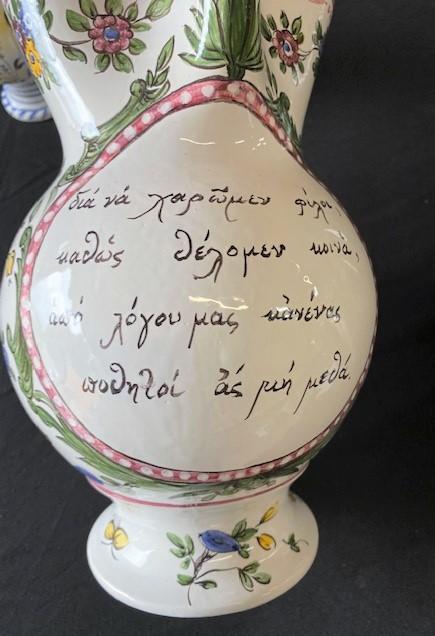 διά νά χαρῶμεν φίλοι,
καθώς θέλομεν κοινά,
ἀπό λόγου μας κἀνένας
ποθητοί ἄς μή μεθᾶ.